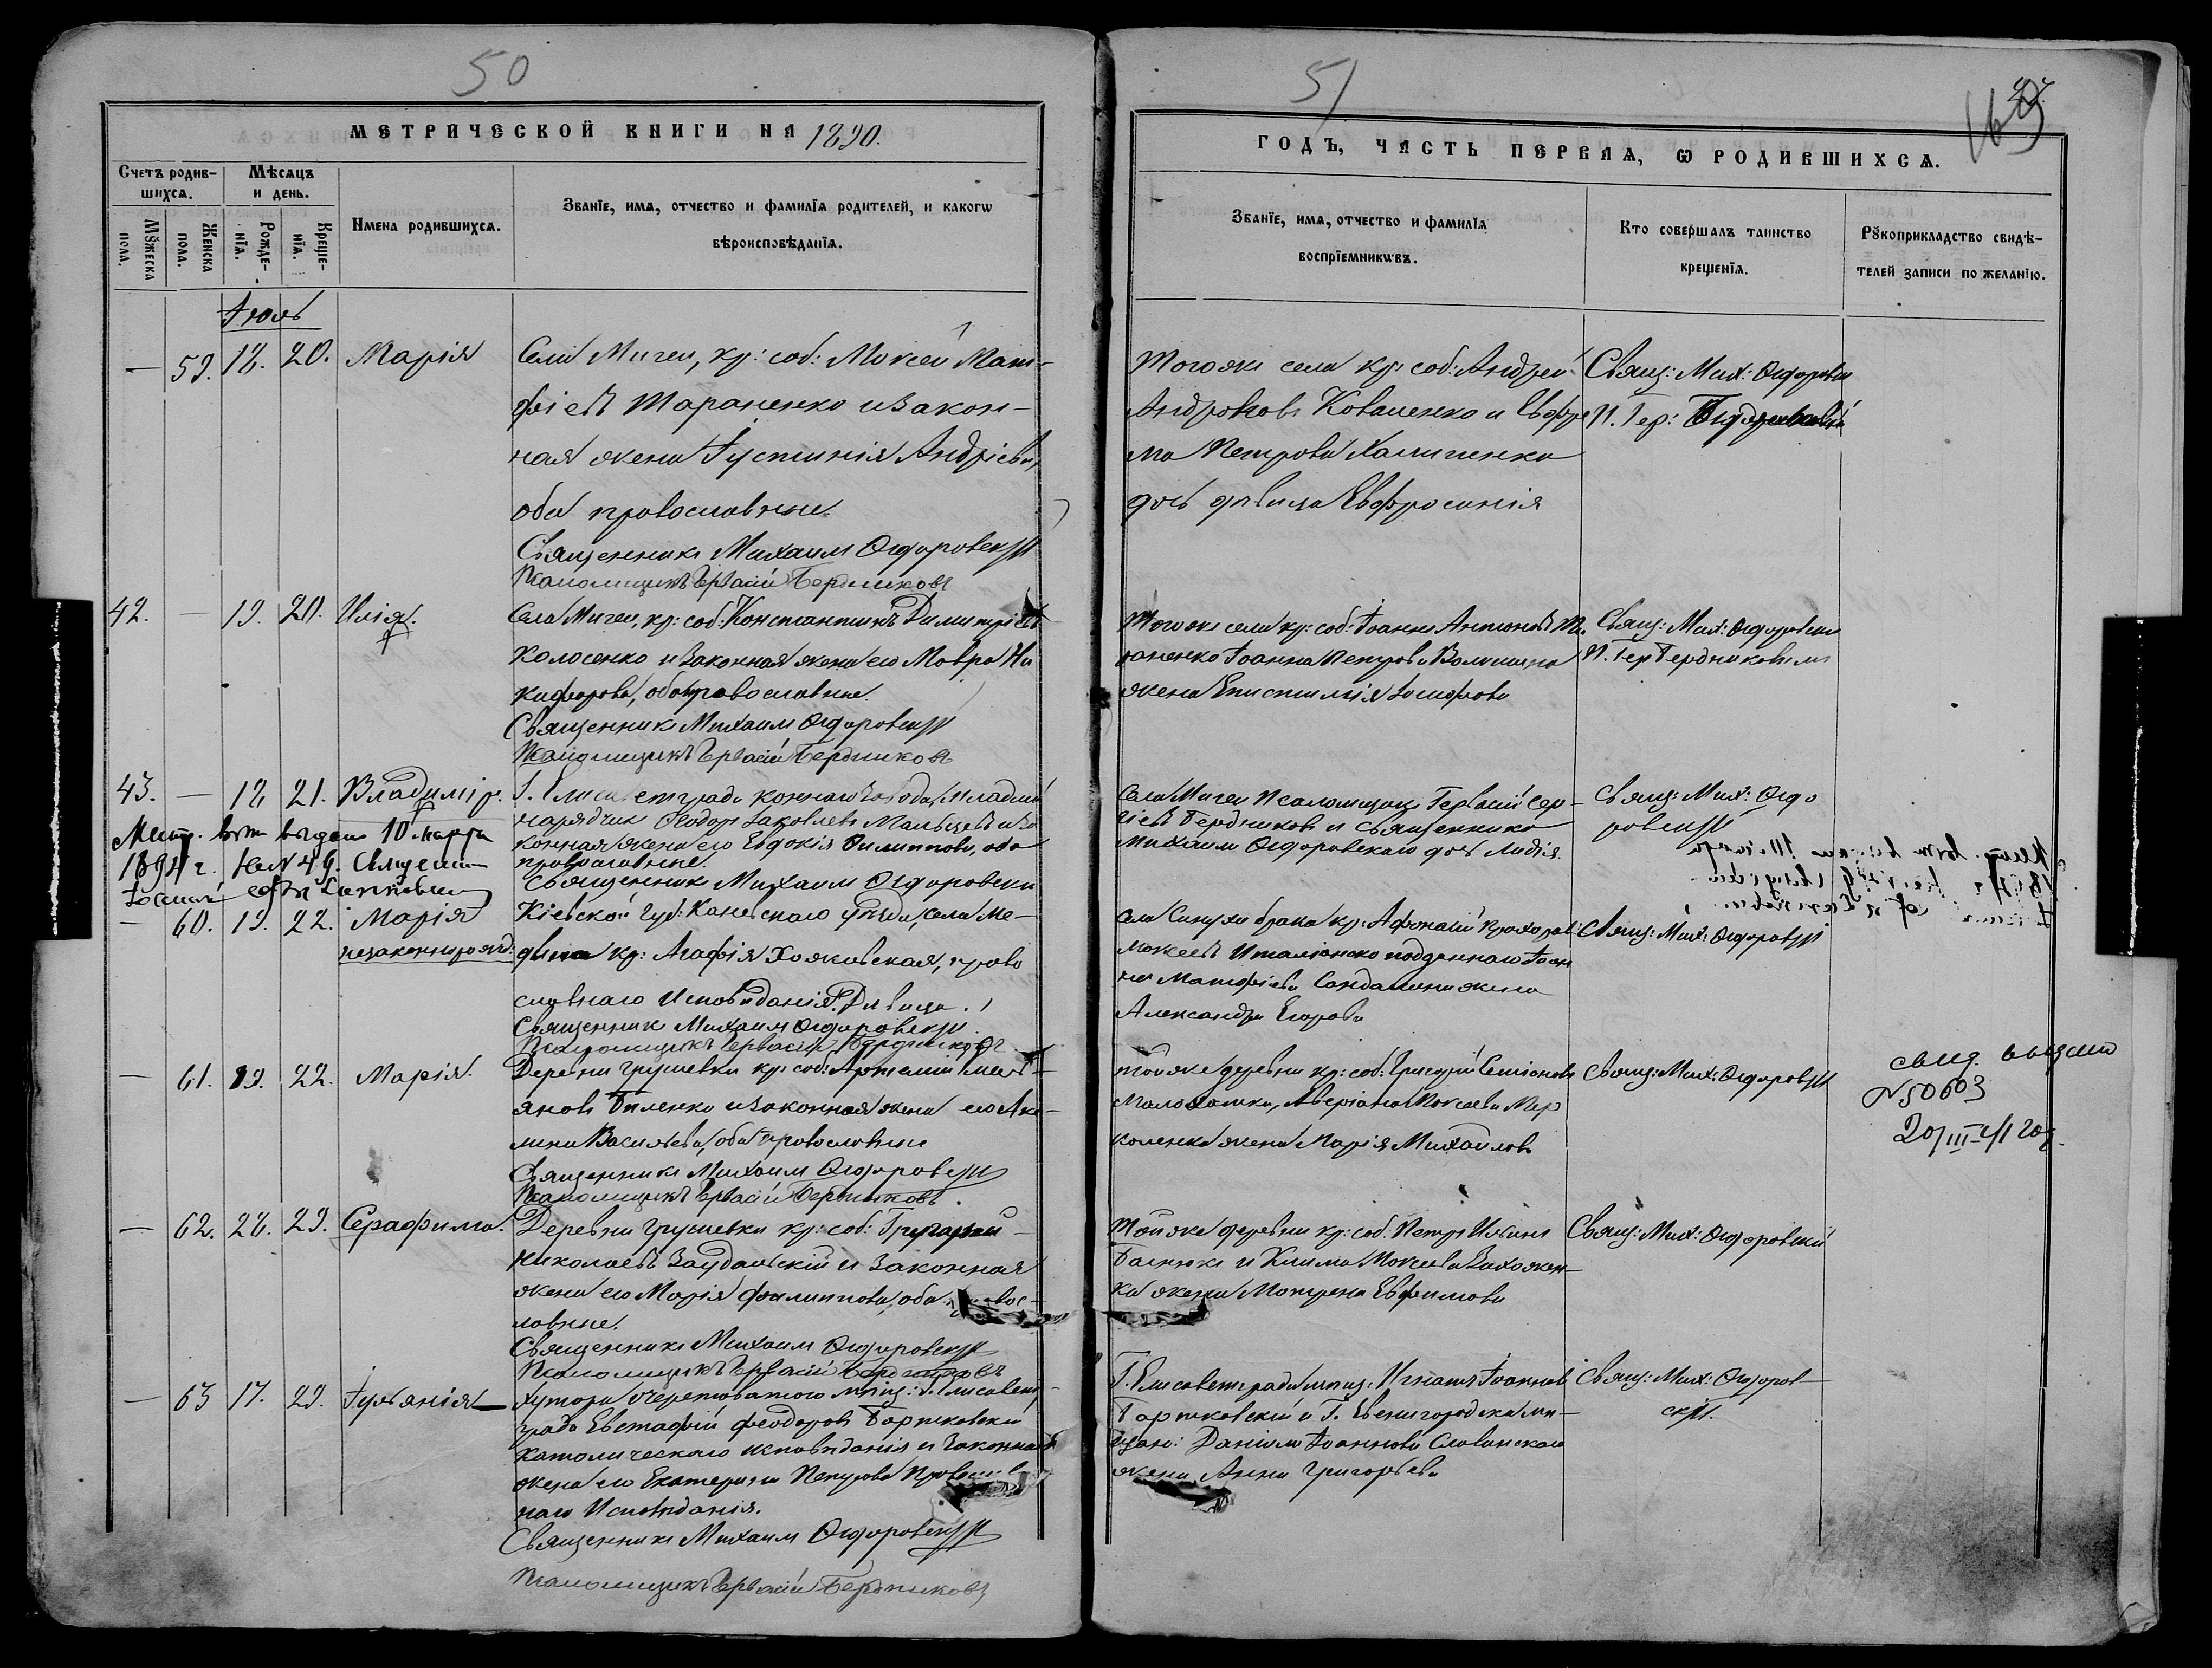 50
МЕТРИЧЕСКОЙ КНИГИ НА 1890.
Счетъ родив-
шихсѧ.
Мѣсѧцъ
и день.
Мꙋжеска
пола.
Женска
пола.
Рожде-
нїѧ.
Креще-
нїѧ.
Имена родившихсѧ.
Званїе, имѧ, отчество и фамилїѧ родителей, и какогѡ
вѣроисповѣданїѧ.
Іюль
— 59. 18. 20. Марія
Села Мигеи, кр: соб: Моисей Мат-
фіевъ Тараненко и закон-
ная жена Іустинія Андріева,
оба православные.
Священникъ Михаилъ Ѳедоровскій
Псаломщикъ Гервасій Бердниковъ
42. — 19. 20. Илія.
Села Мигеи, кр: соб: Константинъ Димитріевъ
Колосенко и законная жена его Мавра Ни
кифорова, оба православные.
Священникъ Михаилъ Ѳедоровскій
Псаломщикъ Гервасій Бердниковъ
43. — 18. 21. Владиміръ.
Г. Елисаветграда коннаго завода, младшій
нарядчик Ѳеодоръ Іаковлевъ Мальцевъ и за
конная жена его Евдокія Филиппова, оба
православные.
Священникъ Михаилъ Ѳедоровски
Метр. выдана 10 марта
1894 г. На № 49. Священ
— 60. 19. 22. Марія
незаконнорожд:
Кіевской губ: Каневскаго уѣзда, села Ме-
двина кр: Агафія Хояковская, право
славнаго исповѣданія. Дѣвица.
Священник Михаилъ Ѳедоровскій.
Псаломщикъ Гервасій Бердниковъ
— 61. 19. 22. Марія.
Деревни Грушевки кр: соб: Артемій
яновъ Биленко и законная жена его Аки-
лина Васильева, оба православные
Священникъ Михаилъ Ѳедоровскій
Псаломщикъ Гервасій Бердниковъ.
— 62. 28. 29. Серафима.
Деревни Грушевки кр: соб: Григорій
Николаевъ Заудальскій и законная
жена его Марія Филиппова, оба правос-
лавные.
Священникъ Михаилъ Ѳедоровскій
Псаломщикъ Гервасій Бердниковъ
— 63 17. 29. Іуліанія
Хутора Очеретоватого мѣщ: г. Елисавет-
града Евстафій Феодоровъ Бартковскій
католическаго исповѣданія и законная
жена его Екатерина Петрова православ
наго исповѣданія.
Священникъ Михаилъ Ѳедоровскій
Псаломщикъ Гервасій Бердниковъ
51
ГОДЪ, ЧАСТЬ ПЕРВАѦ, Ѡ РОДИВШИХСѦ.
Званїе, имѧ, отчество и фамилїѧ
воспрїемникѡвъ.
Кто совершалъ таинство
крещенїѧ.
Рꙋкоприкладство свидѣ-
телей записи по желанїю.
Тогоже села кр: соб: Андрей
Андроновъ Коваленко и
ма Петрова Хамиченка
дочь дѣвица Евфросинія
Свящ: Мих: Ѳедоровск
П. Гер:
Тогоже села кр: соб: Іоаннъ Антоновъ Та
раненко Іоанна Петрова Волошина
жена Епистимія Іосифова
Свящ: Мих: Ѳедоровски
П. Гер Бердниковъ
Села Мигеи Псаломщикъ Гервасій Сер-
гіевъ Бердниковъ и священника
Михаила Ѳедоровскаго дочь Лидія.
Свящ: Мих: Ѳедо
ровскій
Села Синухи брана кр: Афонасій Прохоров
Мокеевъ Италіанско подданнаго Іоан
на Матфіева жена
Александра Егорова
Свящ: Мих: Ѳедоровскій
Той же деревни кр: соб: Григорій Семіоновъ
Малолатка, Аверіана Моисеева Мер
коленка жена Марія Михайлов
Свящ: Мих: Ѳедоровскій
свид. выдано
№ 50603
20/III-41 год.
Той же деревни кр: соб. Петръ Ильинъ
Баснюкъ и Клима Моисеева Захожен-
ка жена Матрена Евфимова
Свящ: Мих: Ѳедоровскій
Г. Елисаветграда мѣщ: Игнатъ Іоаннов
Бартковскій и Г. Звенигородска мѣ-
щан: Даніила Іоаннова Славинскаго
жена Анна Григорьева
Свящ: Мих: Ѳедоров-
скій.